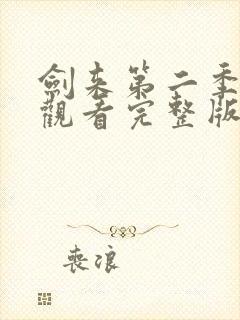 劍来第二季
觀看完整版
喪浪